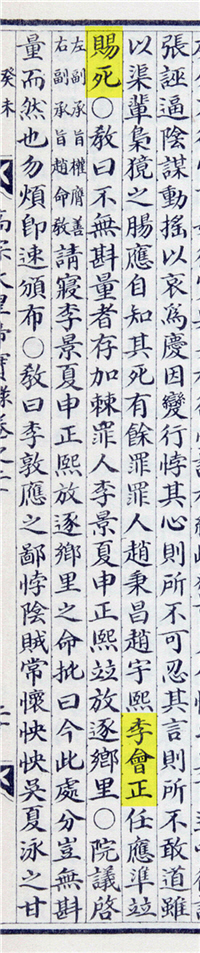 張誣逼陰謀動搖以哀爲慶因變行悖其心則所不可忍其言則所不敢道雖
以渠輩梟獍之腸應自知其死有餘罪罪人趙秉昌趙宇熙李會正任應準竝
賜死○敎曰不無斟量者存加棘罪人李景夏申正熙竝放逐鄕里○院議啓
左副承旨權膺善
右副承旨趙命敎
請寢李景夏申正熙放逐鄕里之命批曰今此處分豈無斟
量而然也勿煩卽速頒布○敎曰李敦應之鄙悖陰賊常懷怏怏吳夏泳之甘
癸未